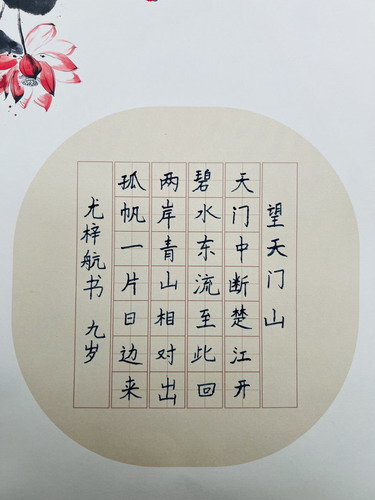 望天门山
天门中断楚江开
碧水东流至此回
两岸青山相对出
孤帆一片日边来
尤梓航书 九岁